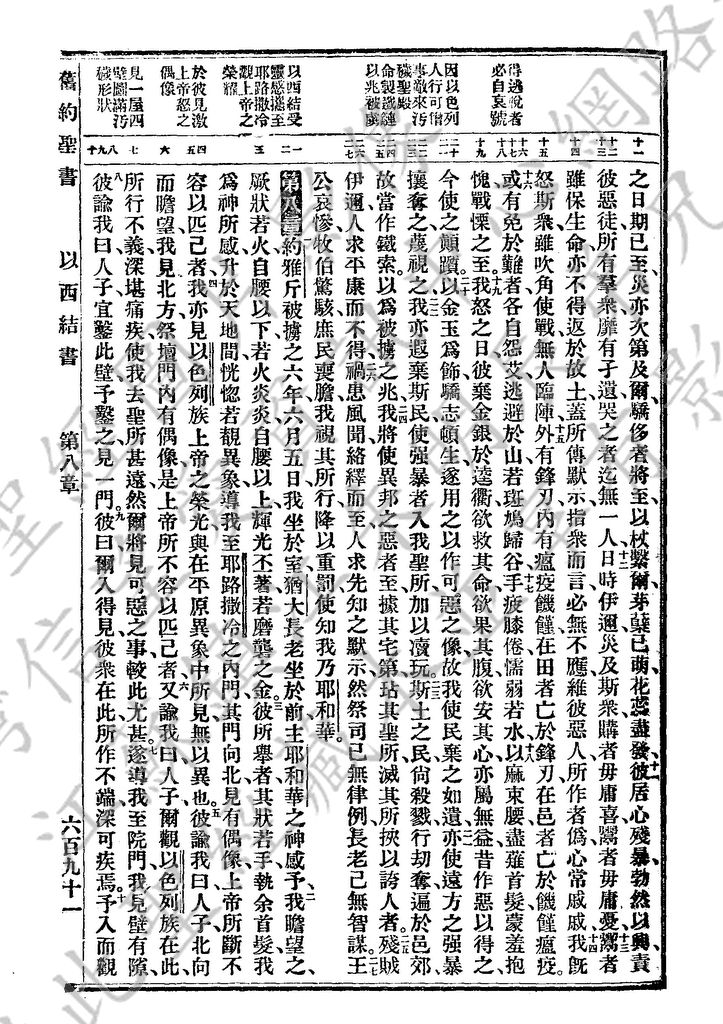 得逃脫者
必自哀號
因以色列
人行可憎
事敵來污
穢聖殿
命製鐵鏈
以兆被虜
以西結受
靈感攜至
耶路撒冷
觀上帝之
榮耀
於彼見激
上帝怒之
偶像
見一屋四
壁圖滿污
穢形狀
十一
十二
十三
十四
十五
十六
十七
十八
十九
二十
二一
二二
二三
二四
二五
二六
二七
一
二
三
四
五
六
七
八
九
十
之日期已至災亦次第及爾驕侈者將至以杖繫爾芽櫱已萌花蕊盡發彼居心殘暴勃然以興責
彼惡徒所有羣衆靡有孑遺哭之者迄無一人日時伊邇災及斯衆購者毋庸喜鬻者毋庸憂鬻者
雖保生命亦不得返於故土蓋所傳默示指衆而言必無不應維彼惡人所作者僞心常戚戚我既
怒斯衆雖吹角使戰無人臨陣外有鋒刃內有瘟疫饑饉在田者亡於鋒刃在邑者亡於饑饉瘟疫
或有免於難者各自怨艾逃避於山若斑鳩歸谷手疲膝倦懦弱若水以麻束腰盡薙首髮蒙羞抱
愧戰慄之至我怒之日彼棄金銀於逵衢欲救其命欲果其腹欲安其心亦屬無益昔作惡以得之
今使之顛躓以金玉爲飾驕志頓生遂用之以作可惡之像故我使民棄之如遺亦使遠方之强暴
攘奪之蔑視之我亦遐棄斯民使强暴者入我聖所加以瀆玩斯土之民尙殺戮行刦奪遍於邑郊
故當作鐵索以爲被擄之兆我將使異邦之惡者至據其宅第玷其聖所滅其挾以誇人者殘賊
伊邇人求平康而不得禍患風聞絡繹而至人求先知之默示然祭司已無律例長老已無智謀王
公哀慘牧伯驚駭庶民喪膽我視其所行降以重罰使知我乃耶和華
第八章約雅斤被擄之六年六月五日我坐於室猶大長老坐於前主耶和華之神感予我瞻望之
厥狀若火自腰以下若火炎炎自腰以上輝光丕著若磨礱之金彼所舉者其狀若手執余首髮我
爲神所感升於天地間恍惚若覩異象導我至耶路撒冷之內門其門向北見有偶像上帝所斷不
容以匹己者我亦見以色列族上帝之榮光與在平原異象中所見無以異也彼諭我曰人子北向
而瞻望我見北方祭壇門內有偶像是上帝所不容以匹己者又諭我曰人子爾觀以色列族在此
所行不義深堪痛疾使我去聖所甚遠然爾將見可惡之事較此尤甚遂導我至院門我見壁有隙
彼諭我曰人子宜鑿此壁予鑿之見一門彼曰爾入得見彼衆在此所作不端深可疾焉予入而觀
舊約聖書 以西結書 第八章 六百九十一